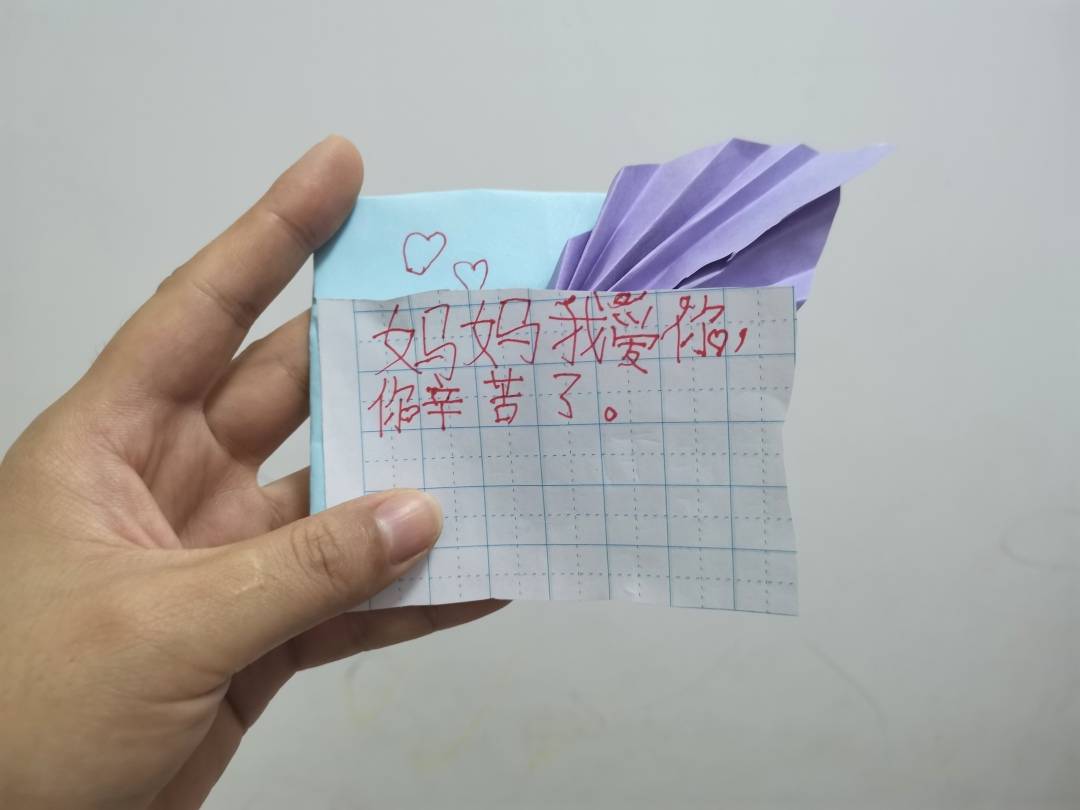 妈妈我爱你，
你辛苦了。